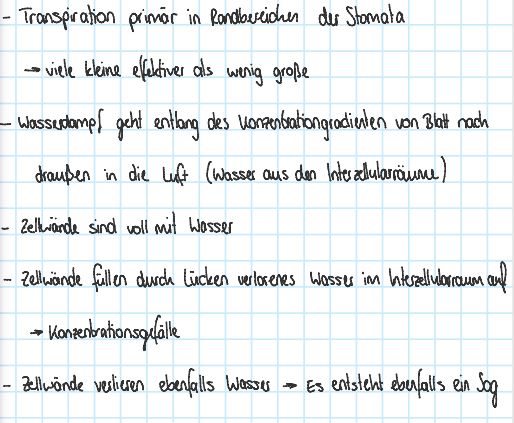 - Transpiration primär in Randbereichen der Stomata
→ viele kleine effektiver als wenig große
- Wasserdampf geht entlang des Konzentrationgradienten von Blatt nach
draußen in die Luft (Wasser aus den Interzellularräume)
- Zellwände sind voll mit Wasser
- Zellwände füllen durch Lücken verlorenes Wasser im Interzellularraum auf
→ Konzentrationsgefälle
- Zellwände verlieren ebenfalls Wasser → Es entsteht ebenfalls ein Sog